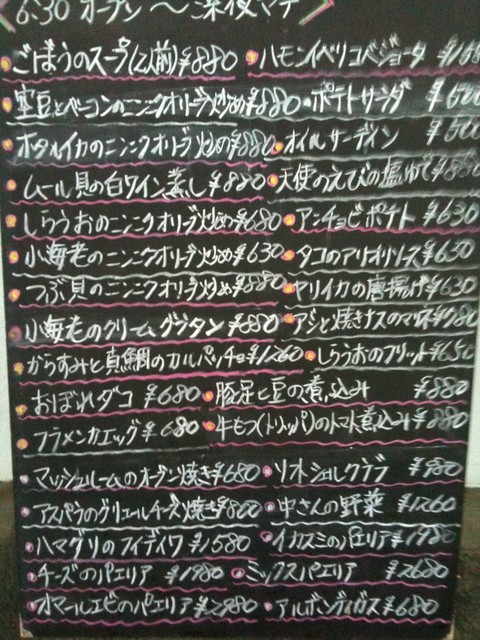 6:30 オープン〜深夜マデ
ごぼうのスープ(2人前)¥880
ハモンイベリコベジョータ
空豆とベーコンのニンニクオリーブ炒め¥880
ポテトサラダ
ホタルイカのニンニクオリーブ炒め¥880
オイルサーディン ¥500
ムール貝の白ワイン蒸し¥880
天使のえびの塩ゆで¥880
しらうおのニンニクオリーブ炒め¥680
アンチョビポテト ¥630
小海老のニンニクオリーブ炒め¥630
タコのアリオリソース¥630
つぶ貝のニンニクオリーブ炒め¥880
ヤリイカの唐揚げ¥630
小海老のクリームグラタン¥880
アジと焼きナスのマリネ¥680
からすみと真鯛のカルパッチョ¥1260
しらうおのフリット¥650
おぼれダコ ¥680
豚足と豆の煮込み ¥880
フラメンカエッグ¥680
牛もつ(トリッパ)のトマト煮込み¥880
マッシュルームのオーブン焼き¥680
ソフトシェルクラブ ¥980
アスパラのグリュイエールチーズ焼き¥800
中さんの野菜 ¥1260
ハマグリのフィデイワ ¥1580
イカスミのパエリア¥1980
チーズのパエリア ¥1980
ミックスパエリア ¥2680
オマールエビのパエリア ¥2980
アルボンディガス¥680